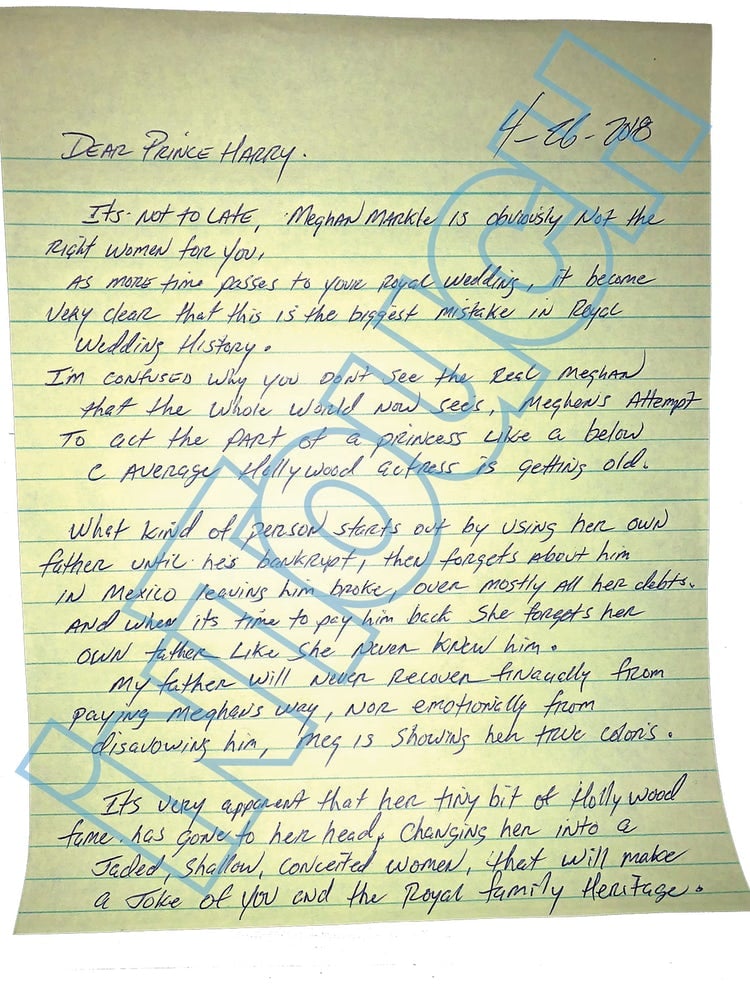 4-26-2018
DEAR PRINCE HARRY.
Its NOT TO LATE, MEGHAN MARKLE is obviously NOT the
Right WOMEN for You,
As MORE time passes to your Royal wedding, it become
Very clear that this is the biggest mistake in Royal
Wedding History.
I'm CONFUSED why you DON'T See the Real Meghan
that the whole World Now sees, Meghan's Attempt
To act the PART of a princess Like a below
C AVERAGE Hollywood actress is getting old.
What kind of person starts out by using her own
father until he's bankrupt, then forgets About him
in Mexico leaving him broke, over mostly All her debts.
And when its time to pay him back She forgets her
OWN father Like She Never Knew him.
My father will Never Recover finacially from
paying Meghans way, NOR emotionally from
disavowing him, Meg is Showing her true colors.
It's very apparent that her tiny bit of Hollywood
fame has gone to her head, Changing her into a
Jaded, Shallow, Conceited women, that will make
a Joke of you and the Royal family Heritage.
INTOUCH